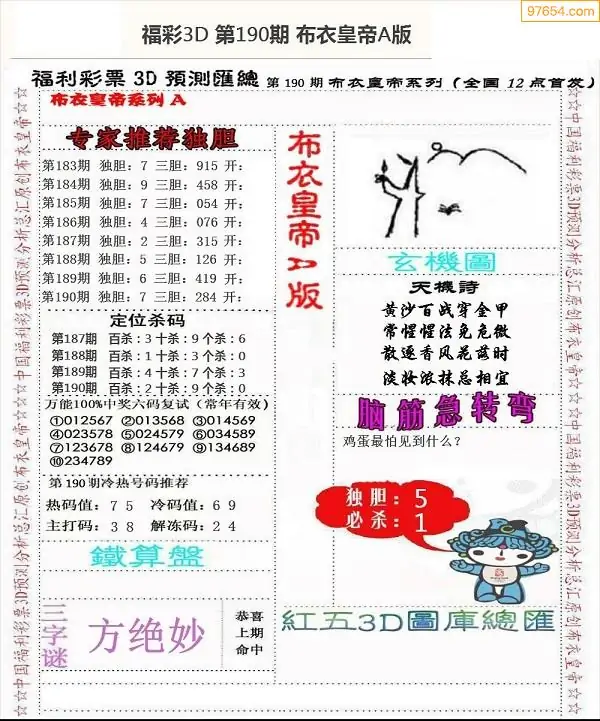 97654.com
福彩3D 第190期 布衣皇帝A版
福利彩票3D預測匯總 第190期布衣皇帝系列（全国12点首发）
布衣皇帝系列A
专家推荐独胆
第183期 独胆：7 三胆：915 开：
第184期 独胆：9 三胆：458 开：
第185期 独胆：7 三胆：054 开：
第186期 独胆：4 三胆：076 开：
第187期 独胆：2 三胆：315 开：
第188期 独胆：5 三胆：126 开：
第189期 独胆：6 三胆：419 开：
第190期 独胆：7 三胆：284 开：
定位杀码
第187期 百杀：3 十杀：9 个杀：6
第188期 百杀：1 十杀：3 个杀：0
第189期 百杀：4 十杀：7 个杀：3
第190期 百杀：2 十杀：9 个杀：0
万能100%中奖六码复试（常年有效）
①012567 ②013568 ③014569
④023578 ⑤024579 ⑥034589
⑦123678 ⑧124679 ⑨134689
⑩234789
第190期冷热号码推荐
热码值：75 冷码值：69
主打码：38 解冻码：24
鐵算盤
三字谜
方绝妙
恭喜
上期
命中
布衣皇帝A版
玄機圖
天機詩
黄沙百战穿金甲
常惺惺法免危微
散逐香风花落时
淡妆浓抹总相宜
脑筋急转弯
鸡蛋最怕见到什么？
独胆：5
必杀：1
紅五3D圖庫總匯
☆☆中国福利彩票3D预测分析总汇原创布衣皇帝☆☆
☆☆中国福利彩票3D预测分析总汇原创布衣皇帝☆☆